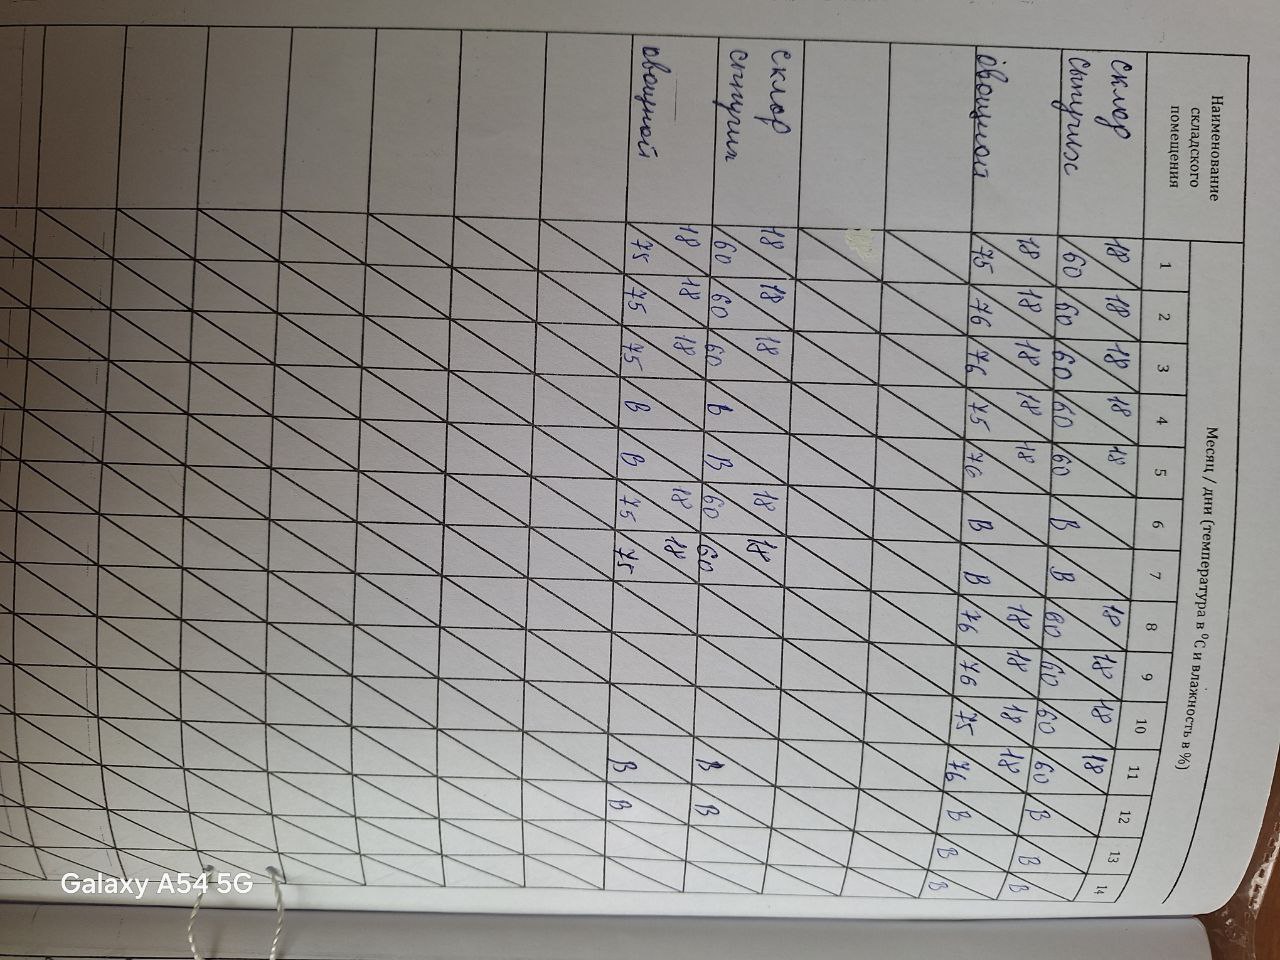 Наименование
складского
помещения
Месяц / дни (температура в °С и влажность в %)
1 2 3 4 5 6 7 8 9 10 11 12 13 14
склад 18 18 18 18 18 18 18 18 18
сыпучих 60 60 60 60 60 В В 60 60 60 60 В В В
18 18 18 18 18 18 18 18 18
овощной 75 76 76 75 76 В В 76 76 75 76 В В В
склад 18 18 18 18 18
сыпучих 60 60 60 В В 60 60 В В
18 18 18 18 18
овощной 75 75 75 В В 75 75 В В
Galaxy A54 5G